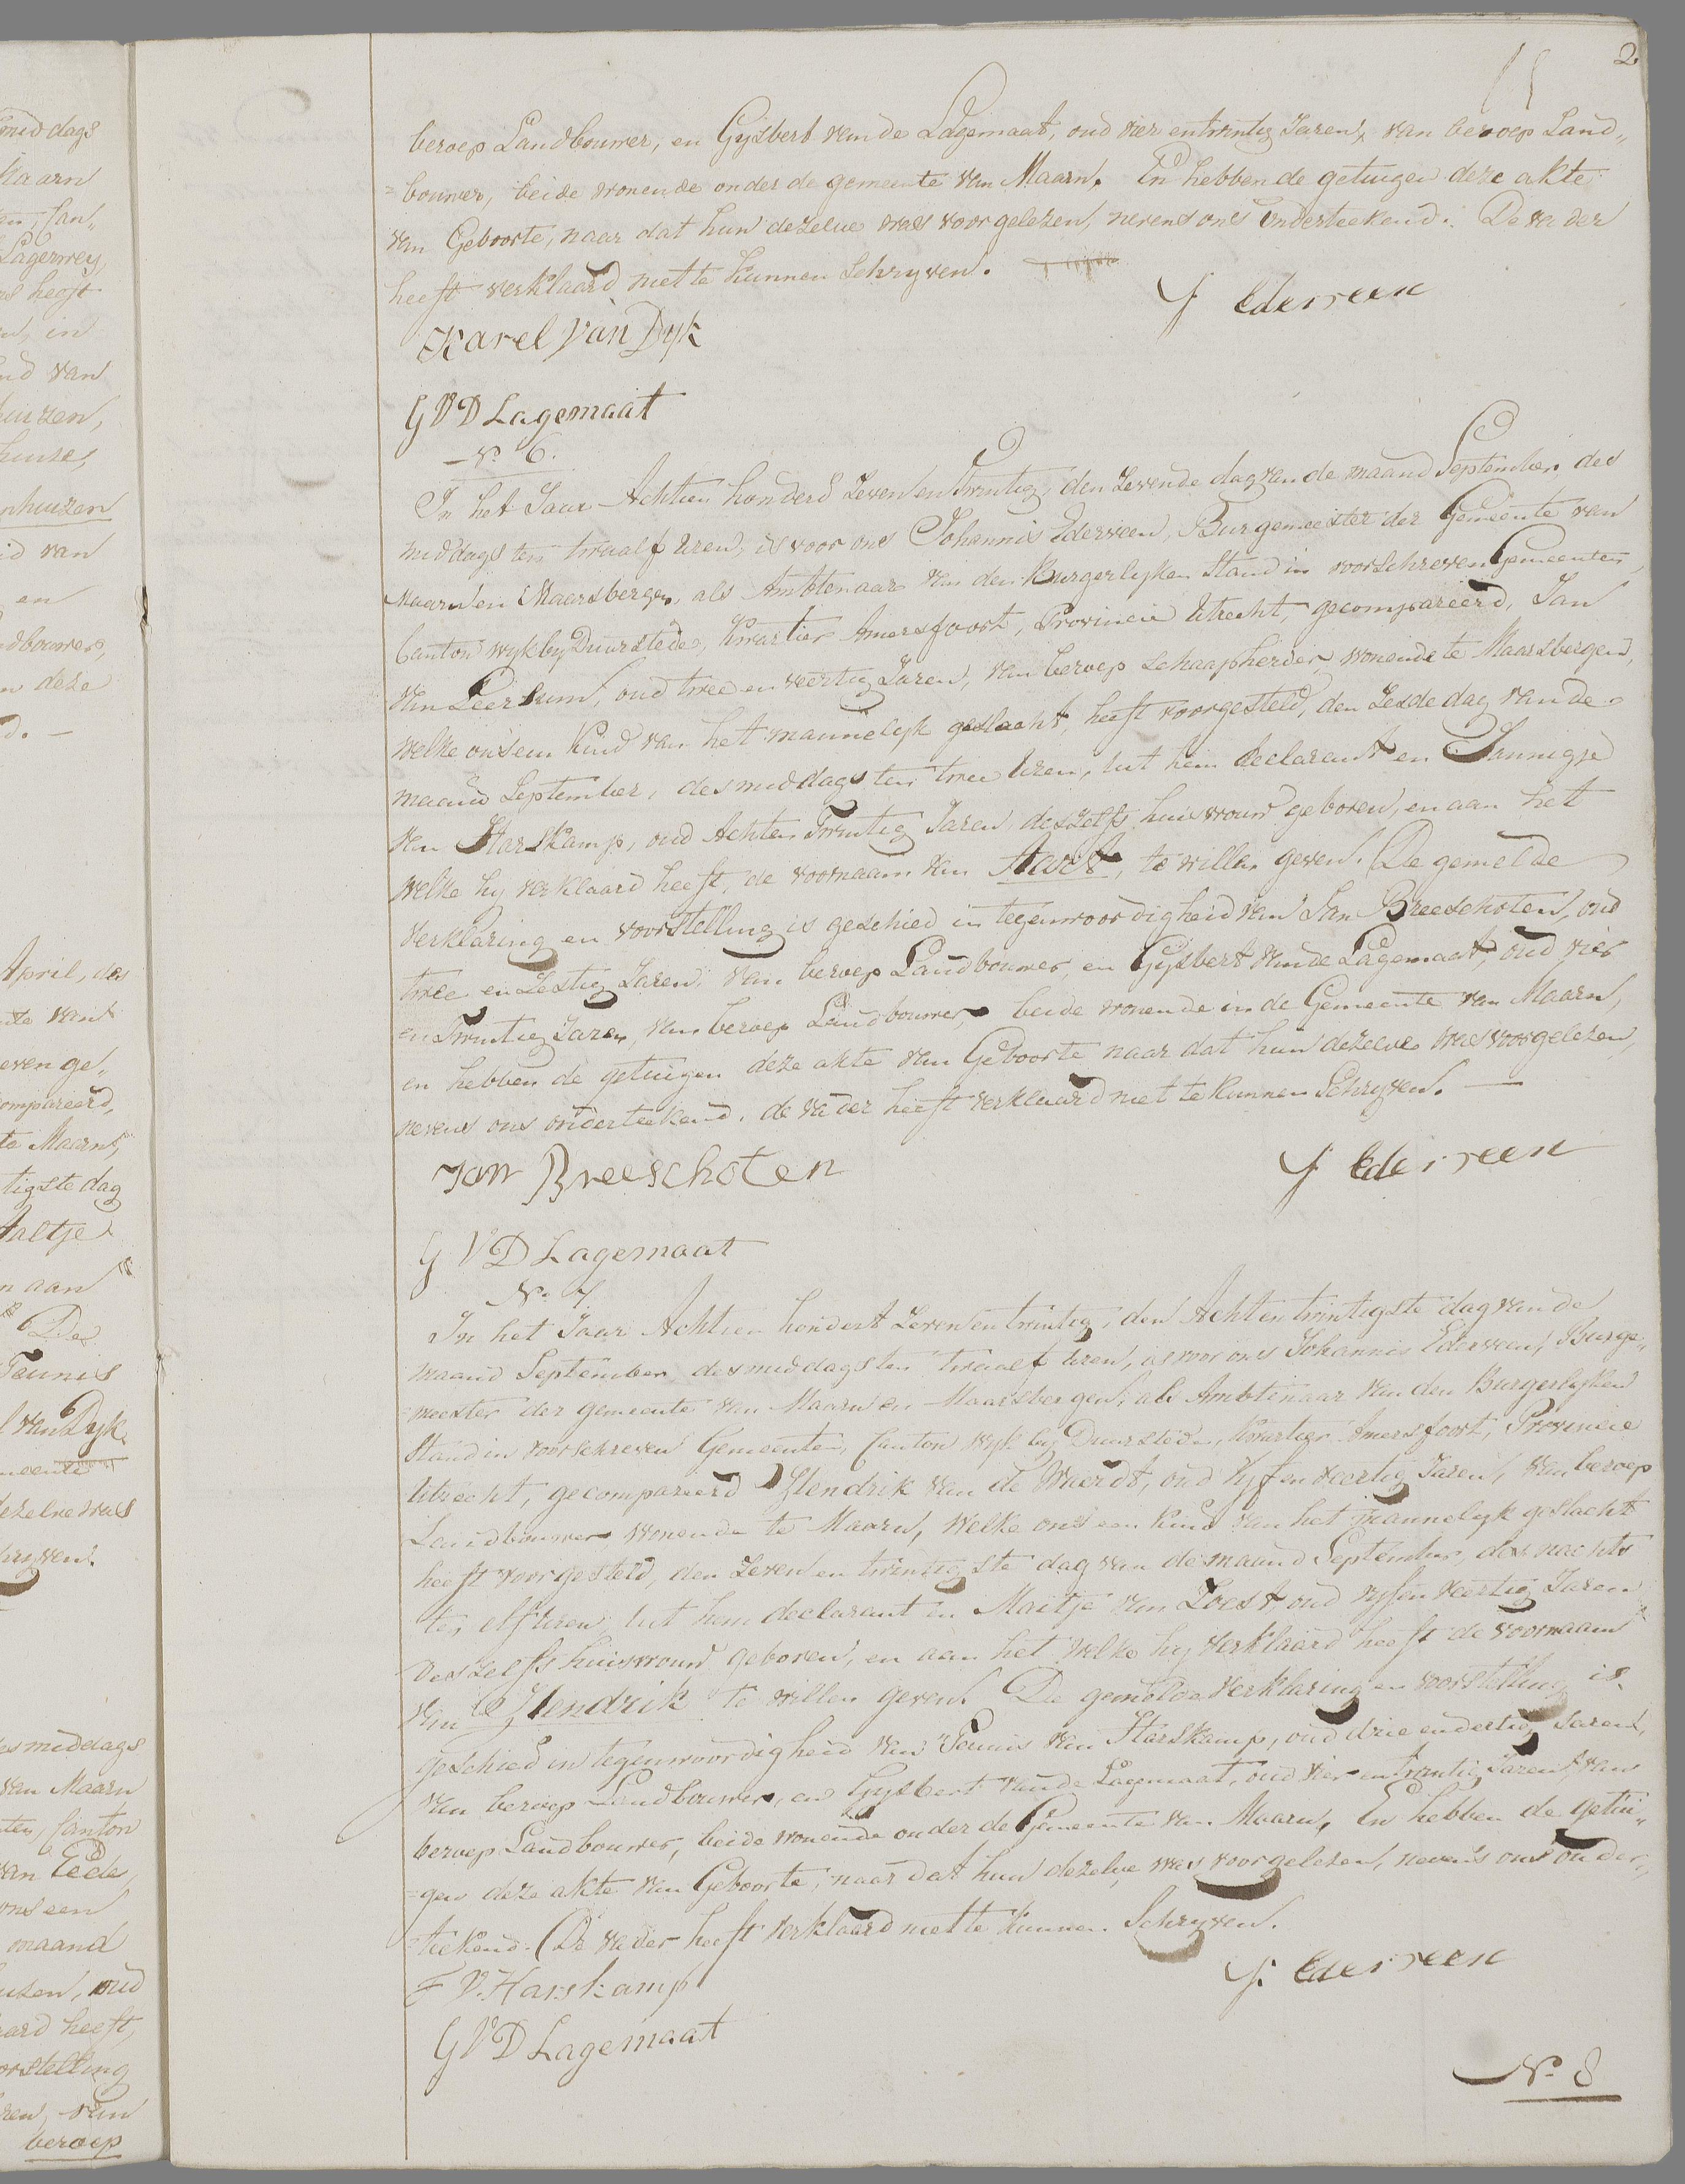 2
beroep Landbouwer, en Gysbert van de Lagemaat, oud vier en twintig Jaren, van beroep Land„
=bouwer, beide wonende onder de gemeente van Maarn. En hebben de getuigen deze akte
van Geboorte, naar dat hun dezelve was voorgelezen, nevens ons Onderteekend. De vader
heeft verklaard niet te kunnen Schryven.
J Ederveen
Karel Van Dyk
G V D Lagemaat
N.º 6.
In het Jaar Achtien honderd Zeven en Twintig, den Zevende dag van de maand September des
middags ten twaalf Uren, is voor ons Johannis Ederveen, Burgemeester der Gemeente van
Maarn en Maarsbergen, als Ambtenaar van den Burgerlyken Stand in voorschreven Gemeenten,
Canton wyk by Duurstede, Kwartier Amersfoort, Provincie Utrecht, gecompareerd, Jan
Van Leersum, oud twee en veertig Jaren, van beroep Schaapherder, wonende te Maarsbergen,
Welke ons een Kind van het mannelyk geslacht, heeft voorgesteld, den Zesde dag van de
maand September, des middags ten twee Uren, uit hem declarant en Jannigje
Van Harskamp, oud Achten Twintig Jaren, deszelfs huisvrouw geboren, en aan het
Welke hy verklaard heeft, de voornaam van Aart, te willen geven. De gemelde
Verklaring en voorstelling is geschied in tegenwoordigheid van Jan Breeschoten, oud
twee en Zestig Jaren, van beroep Landbouwer, en Gysbert van de Lagemaat, oud vier
en Twintig Jaren, van beroep Landbouwer, beide wonende in de Gemeente van Maarn,
en hebben de getuigen deze akte van Geboorte naar dat hun dezelve was voorgelezen,
nevens ons onderteekend. de vader heeft verklaard niet te kunnen Schryven. —
Jan Breeschoten
J Ederveen
G V D Lagemaat
N.º 7
In het Jaar Achtien hondert Zeven en twintig, den Achten twintigste dag van de
maand September des middags ten twaalf Uren, is voor ons Johannis Ederveen, Burge„
=meester der gemeente van Maarn en Maarsbergen, als Ambtenaar van den Burgerlyken
Stand in voorschreven Gemeenten, Canton Wyk by Duurstede, Kwartier Amersfoort, Provincie
Utrecht, gecompareerd Hendrik van de Waerdt, oud Vyf en veertig Jaren, van beroep
Landbouwer, wonende te Maarn, Welke ons een Kind van het mannelyk geslacht
heeft voorgesteld, den Zeven en twintigste dag van de maand September, des nachts
ten elf Uren, uit hem declarant en Maitje van Zoest, oud vyf en veertig Jaren
Deszelfs huisvrouw geboren, en aan het Welke hy verklaard heeft de voornaam
van Hendrik te willen geven. De gemelde Verklaring en voorstelling is
geschied in tegenwoordigheid van Teunis van Harskamp, oud drie en dertig Jaren,
van beroep Landbouwer, en Gysbert van de Lagemaat, oud vier en twintig Jaren, van
beroep Landbouwer, beide wonende onder de Gemeente van Maarn, En hebben de getui„
=gen deze akte van Geboorte, naar dat hun dezelve was voorgelezen, nevens ons onder„
=teekend. De vader heeft Verklaard niet te kunnen Schryven.
J: Ederveen
T V. Harskamp
G V D Lagemaat
N.º 8